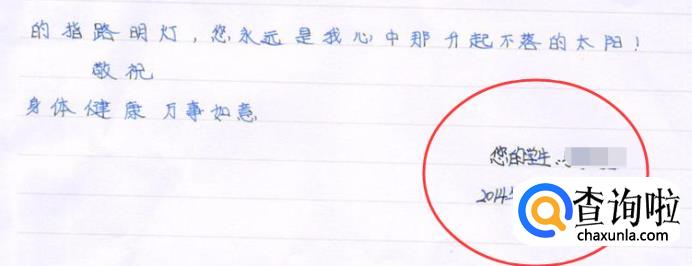 的指路明灯，您永远是我心中那升起不落的太阳！
敬祝
身体健康 万事如意
您的学生:
2014年
查询啦
chaxunla.com